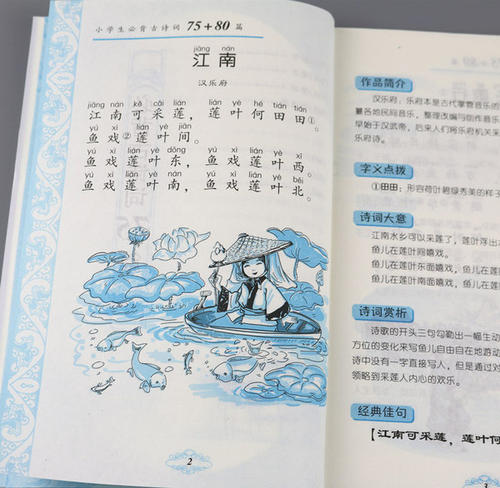 小学生必背古诗词 75+80 篇
jiāng nán
江南
汉乐府
jiāng nán kě cǎi lián, lián yè hé tián tián
江南可采莲，莲叶何田田①。
yú xì lián yè jiān
鱼戏②莲叶间。
yú xì lián yè dōng yú xì lián yè xī
鱼戏莲叶东，鱼戏莲叶西。
yú xì lián yè nán yú xì lián yè běi
鱼戏莲叶南，鱼戏莲叶北。
2
作品简介
汉乐府：乐府本是古代掌管音乐
集各地民间音乐，整理改编与创作音乐
早始于汉武帝，后来人们将乐府机关
乐府诗。
字义点拨
①田田：形容荷叶碧绿秀美的样子
诗词大意
江南水乡可以采莲了，莲叶浮出
鱼儿在莲叶间嬉戏。
鱼儿在莲叶东面嬉戏，鱼儿在莲
鱼儿在莲叶南面嬉戏，鱼儿在莲
诗词赏析
诗歌的开头三句勾勒出一幅生动
方位的变化来写鱼儿自由自在地游动
诗中没有一字直接写人，但是通过对
领略到采莲人内心的欢乐。
经典佳句
【江南可采莲，莲叶何
3